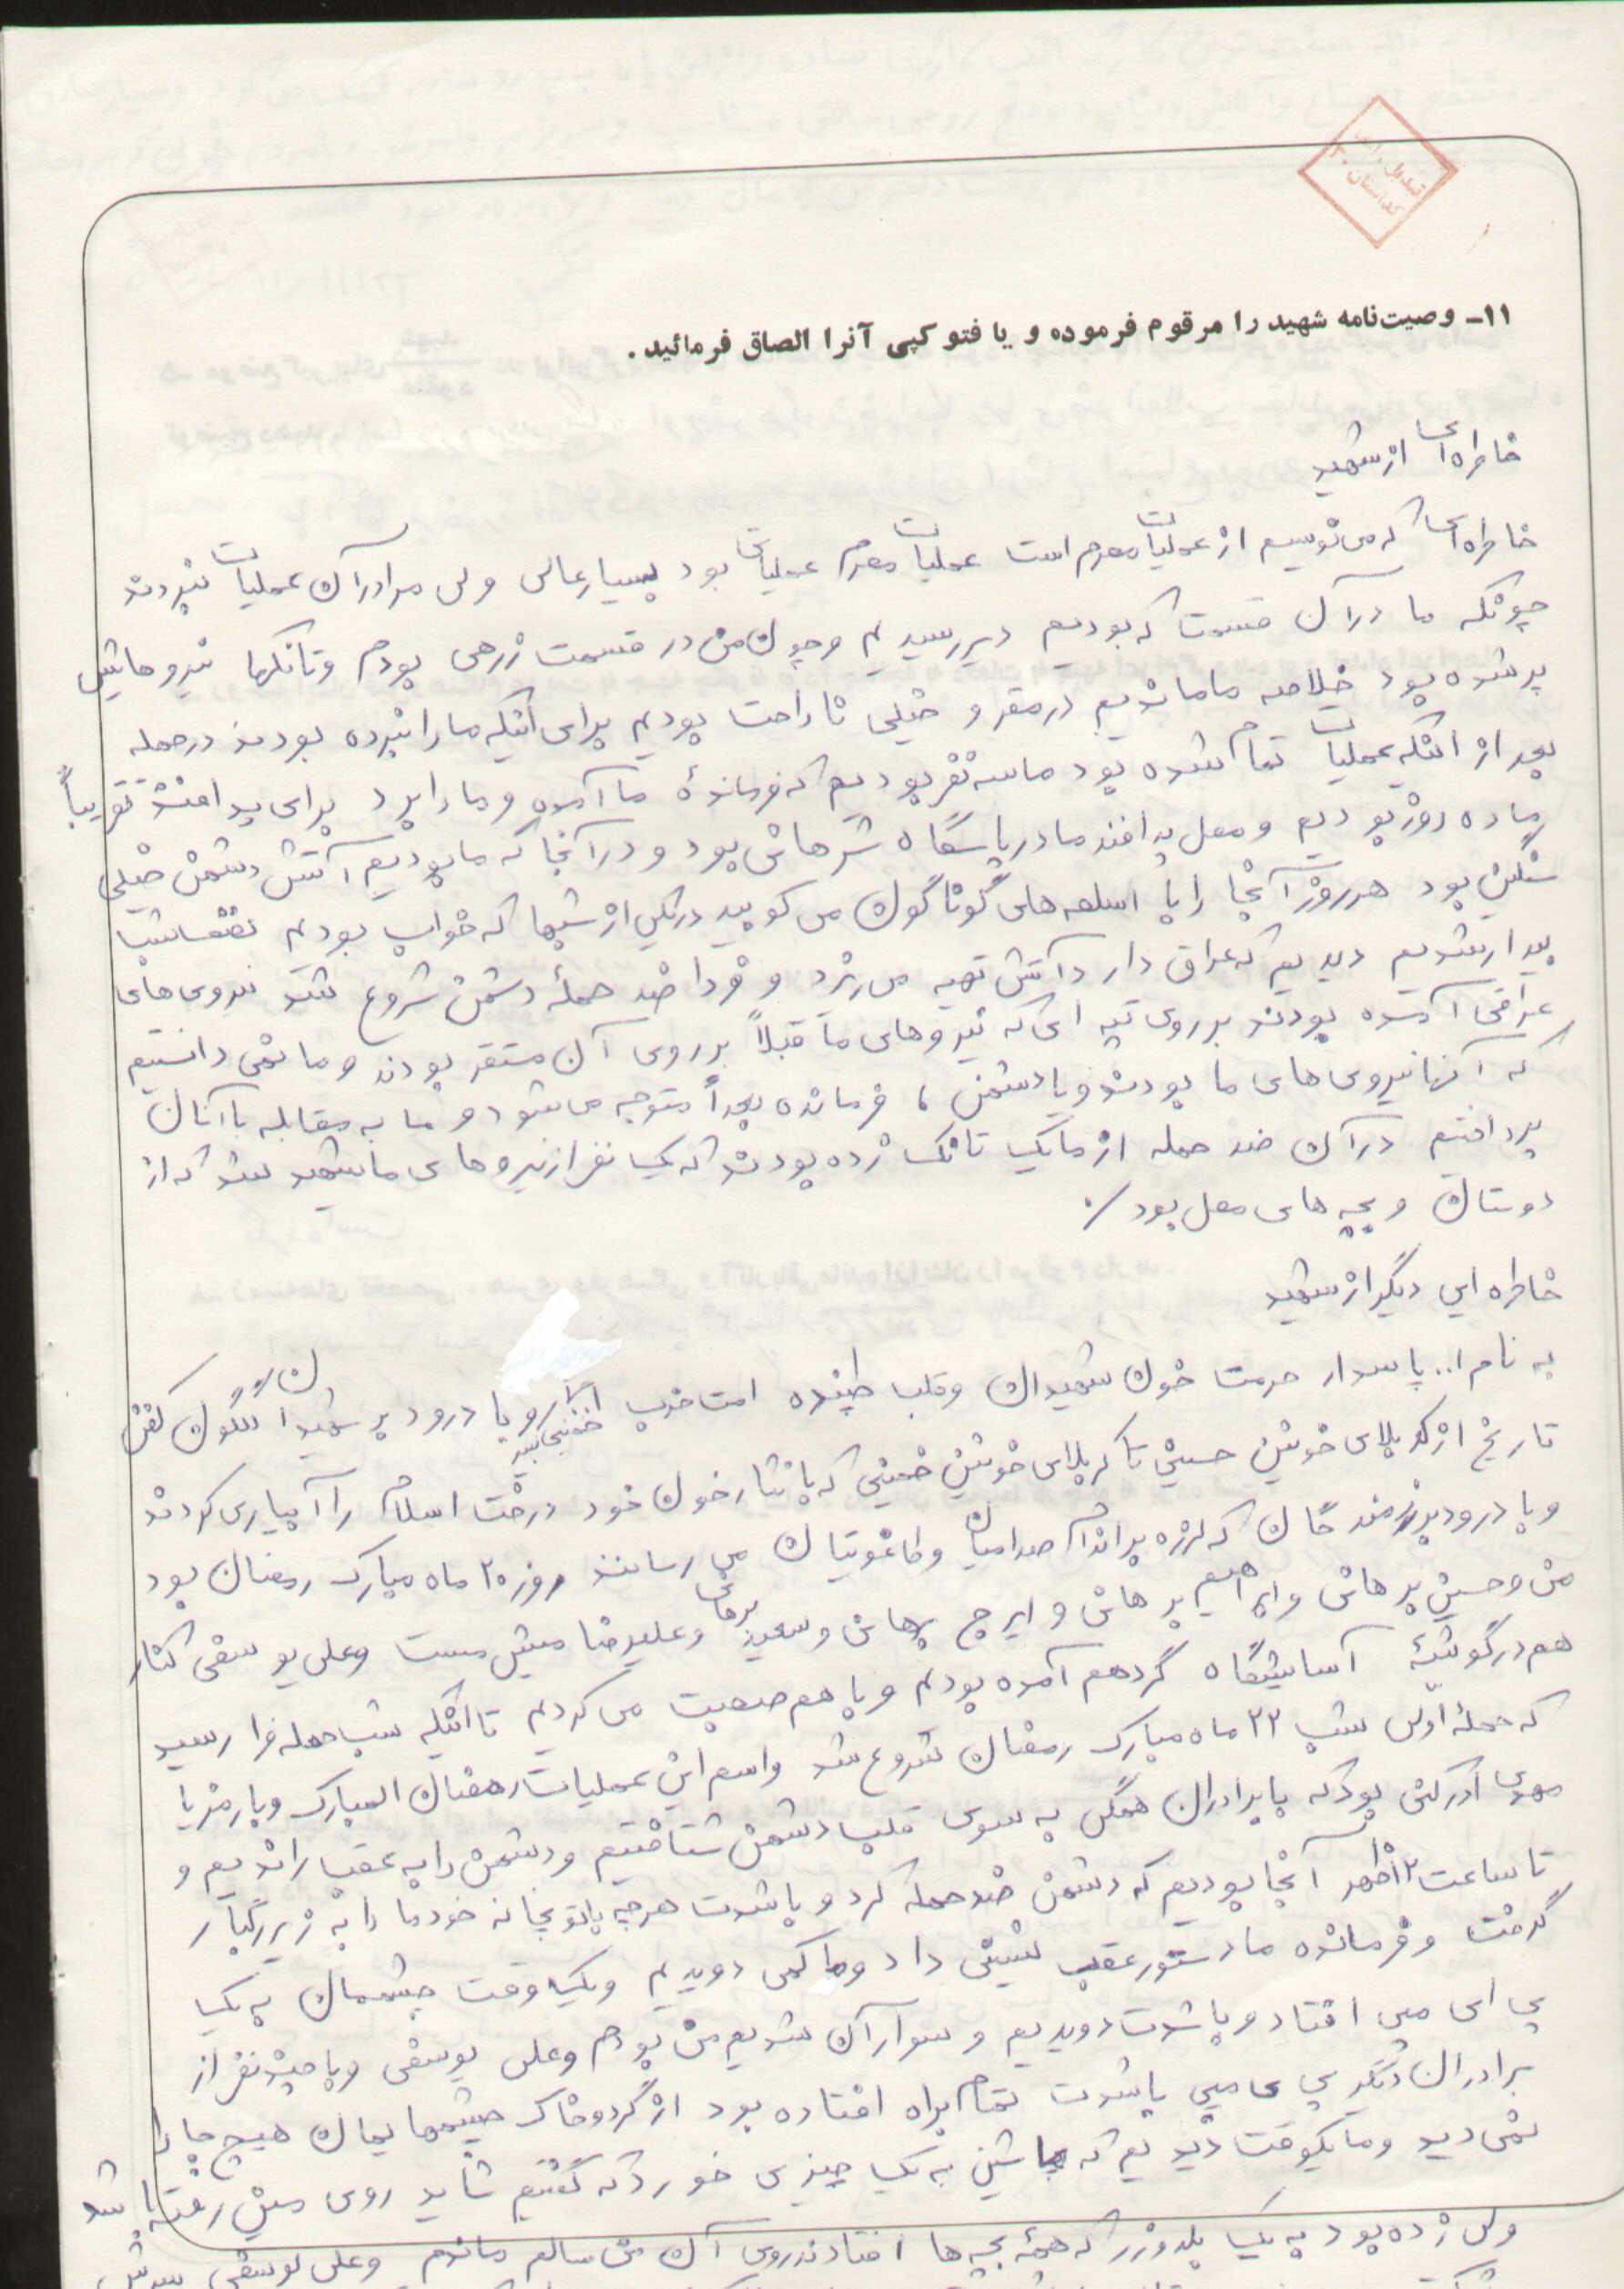 ۱۱- وصیت‌نامه شهید را مرقوم فرموده و یا فتو کپی آنرا الصاق فرمائید.
خاطره‌ای از شهید
خاطره‌ای که می نویسم از عملیات محرم است عملیات محرم عملیاتی بود بسیار عالی ولی مرا در آن عملیات نبردند
چونکه ما در آن قسمت که بودیم دیر رسیدیم و چون من در قسمت زرهی بودم و تانکها نیروهایش
پر شده بود خلاصه ما ماندیم در مقر و خیلی ناراحت بودیم برای اینکه ما را نبرده بودند در حمله
بعد از اینکه عملیات تمام شده بود ما سه نفر بودیم که فرماندهٔ ما آمده و ما را برد برای پدافند تقریباً
ما ده روز بودیم و محل پدافند ما در پاسگاه شرهانی بود و در آنجا که ما بودیم آتش دشمن خیلی
سنگین بود هر روز آنجا را با اسلحه‌های گوناگون می کوبید در یکی از شبها که خواب بودیم نصف شب
بیدار شدیم دیدیم که عراق دارد آتش تهیه می ریزد و فردا ضد حملهٔ دشمن شروع شد نیروی های
عراقی آمده بودند بر روی تپه ای که نیروهای ما قبلاً بر روی آن مستقر بودند و ما نمی دانستیم
که آنها نیروی های ما بودند و یا دشمن، فرمانده بعداً متوجه می شود و ما به مقابله با آنان
پرداختیم در آن ضد حمله از ما یک تانک زده بودند که یک نفر از نیروهای ما شهید شد که از
دوستان و بچه های محل بود./
خاطره ایی دیگر از شهید
به نام ا.. پاسدار حرمت خون شهیدان و قلب طپنده امت حزب ا... خمینی کبیر و با درود بر شهیدان گلگون کفن
تاریخ از کربلای خونین حسینی تا کربلای خونین خمینی که با نثار خون خود درخت اسلام را آبیاری کردند
و با درود بر رزمندگان که لرزه بر اندام صدامیان و طاغوتیان می رسانند روز ۲۰ ماه مبارک رمضان بود
من و حسین برهانی و ابراهیم برهانی و ایرج برهانی و سعید برهانی و علیرضا میش مست و علی یوسفی کنار
هم در گوشهٔ آسایشگاه گرد هم آمده بودیم و با هم صحبت می کردیم تا اینکه شب حمله فرا رسید
که حملهٔ اولی شب ۲۲ ماه مبارک رمضان شروع شد و اسم این عملیات رمضان المبارک و با رمز یا
مهدی ادرکنی بود که با برادران همگی به سوی قلب دشمن شتافتیم و دشمن را به عقب راندیم و
تا ساعت ۲ ظهر آنجا بودیم که دشمن ضد حمله کرد و با شدت هر چه با توپخانه خود ما را به زیر رگبار
گرفت و فرمانده ما دستور عقب نشینی داد و ما کمی دویدیم و یک وقت چشممان به یک
پی ای میی افتاد و با شدت دویدیم و سوار آن شدیم من بودم و علی یوسفی و با چند نفر از
برادران دیگر پی ی میی با شدت تمام براه افتاده بود از گرد و خاک چشمهایمان هیچ جا را
نمی دید و ما یکوقت دیدیم که ماشین به یک چیزی خورد که گفتیم شاید روی مین رفته باشد
ولی زده بود به یک بلدوزر که همهٔ بچه ها افتادند روی آن من سالم ماندم و علی یوسفی